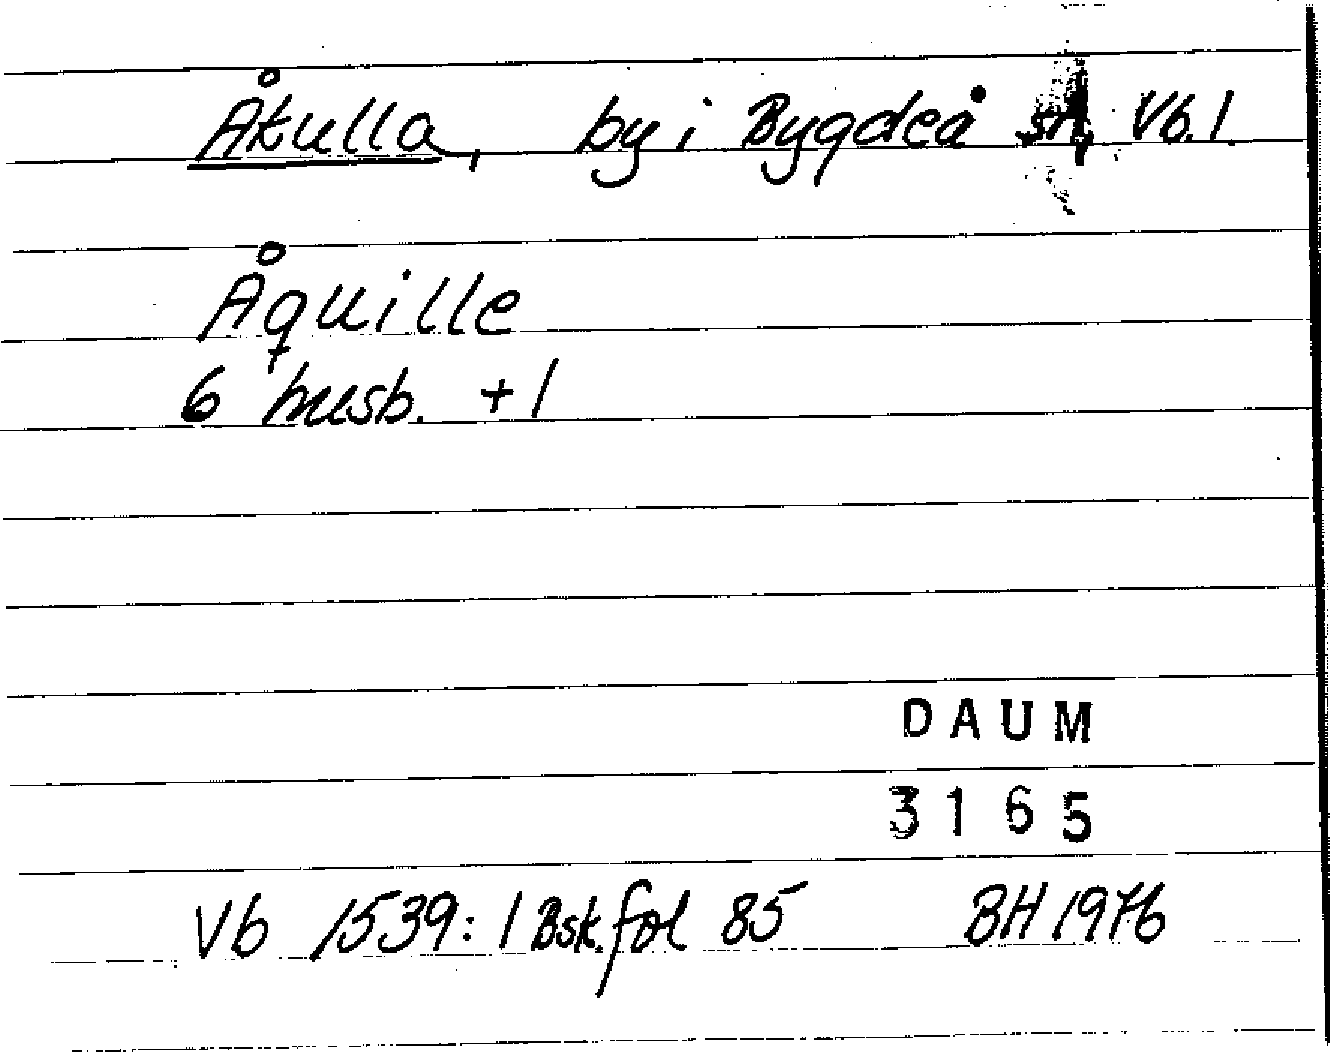 Åkulla, by i Bygdeå sn, Vb. l.
Åquille
6 husb. + 1
DAUM
3165
Vb 1539: 1 Bsk. fol 85 BH 1976